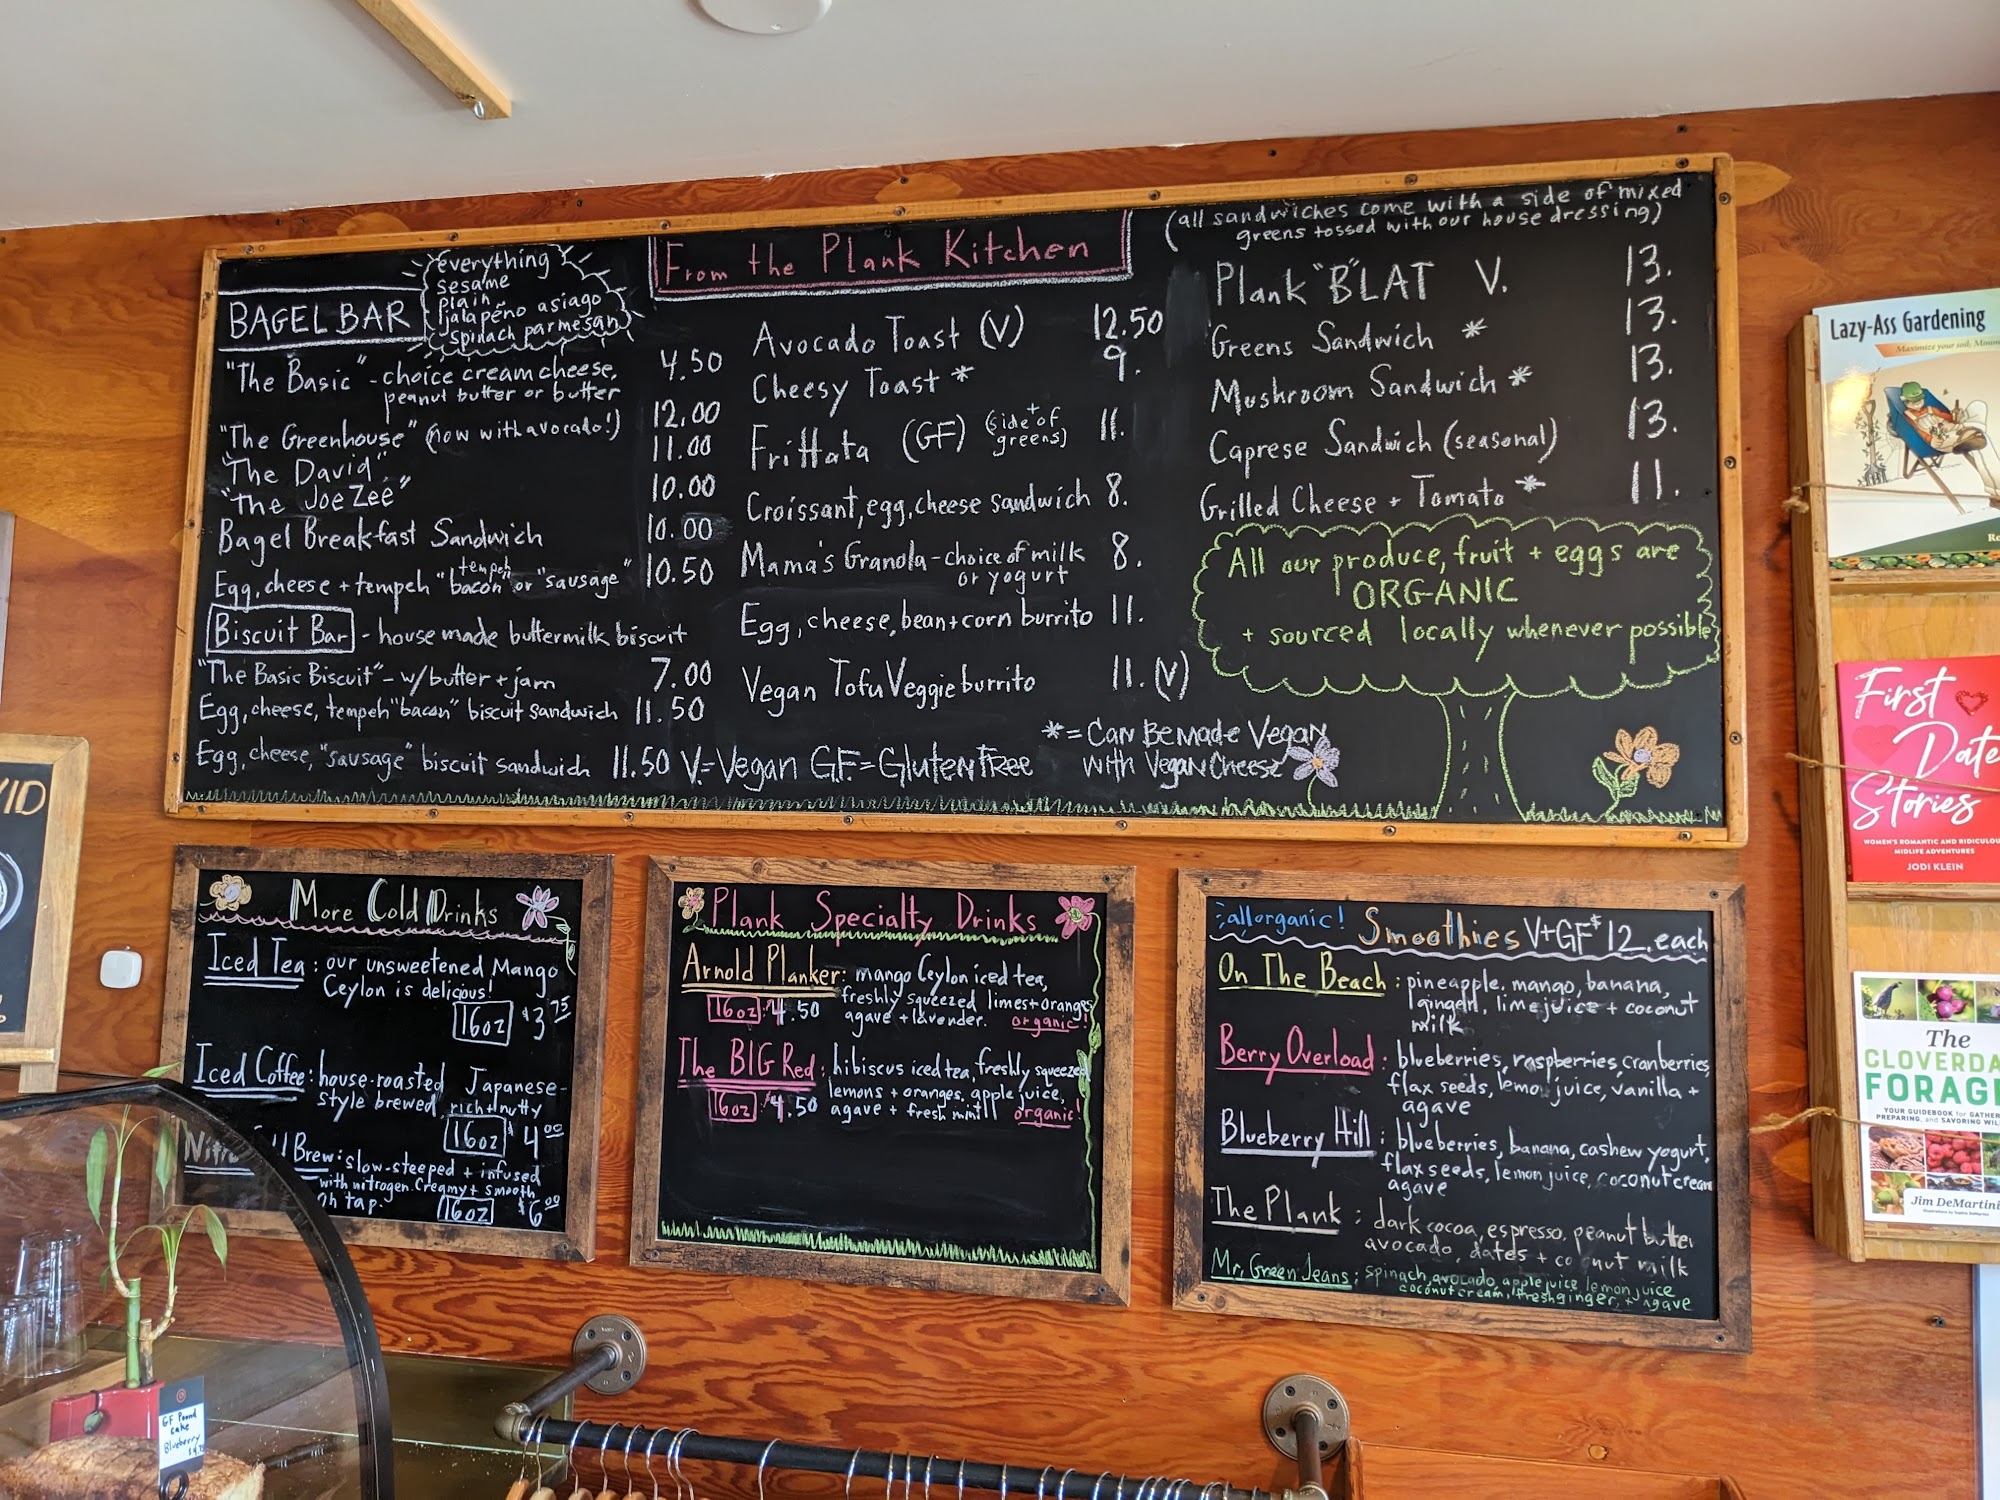 BAGEL BAR
everything
sesame
plain
jalapeño asiago
spinach parmesan
"The Basic" - choice cream cheese, 4.50
peanut butter or butter
"The Greenhouse" (now with avocado!) 12.00
"The David" 11.00
"The Joe Zee" 10.00
Bagel Breakfast Sandwich 10.00
Egg, cheese + tempeh "bacon" or tempeh "sausage" 10.50
Biscuit Bar - house made buttermilk biscuit
"The Basic Biscuit" - w/butter + jam 7.00
Egg, cheese, tempeh "bacon" biscuit sandwich 11.50
Egg, cheese, "sausage" biscuit sandwich 11.50
From the Plank Kitchen
Avocado Toast (V) 12.50
Cheesy Toast * 9.
Frittata (GF) (+ side of greens) 11.
Croissant, egg, cheese sandwich 8.
Mama's Granola - choice of milk 8.
or yogurt
Egg, cheese, bean + corn burrito 11.
Vegan Tofu Veggie burrito 11. (V)
V. = Vegan G.F. = Gluten Free
* = Can Be Made Vegan
with Vegan Cheese
(all sandwiches come with a side of mixed
greens tossed with our house dressing)
Plank "B"LAT V. 13.
Greens Sandwich * 13.
Mushroom Sandwich * 13.
Caprese Sandwich (seasonal) 13.
Grilled Cheese + Tomato * 11.
All our produce, fruit + eggs are
ORGANIC
+ sourced locally whenever possible
More Cold Drinks
Iced Tea: our unsweetened Mango
Ceylon is delicious!
16oz $3 75
Iced Coffee: house-roasted Japanese-
style brewed, rich + nutty
16oz $4 00
Brew: slow-steeped + infused
with nitrogen. Creamy + smooth
On tap. 16oz $6 00
Plank Specialty Drinks
Arnold Planker: mango Ceylon iced tea,
freshly squeezed limes + oranges
16oz $4.50 agave + lavender. organic!
The BIG Red: hibiscus iced tea, freshly squeezed
lemons + oranges, apple juice,
16oz $4.50 agave + fresh mint! organic!
all organic! Smoothies V+GF $12. each
On The Beach: pineapple, mango, banana,
ginger, lime juice + coconut
milk
Berry Overload: blueberries, raspberries, cranberries,
flax seeds, lemon juice, vanilla +
agave
Blueberry Hill: blueberries, banana, cashew yogurt,
flax seeds, lemon juice, coconut cream
agave
The Plank: dark cocoa, espresso, peanut butter
avocado, dates + coconut milk
Mr. Green Jeans: spinach, avocado, apple juice, lemon juice
coconut cream, fresh ginger, + agave
Lazy-Ass Gardening
Maximize your soil; Minim
Re
First
Date
Stories
WOMEN'S ROMANTIC AND RIDICULOU
MIDLIFE ADVENTURES
JODI KLEIN
The
CLOVERDA
FORAG
YOUR GUIDEBOOK for GATHER
PREPARING, and SAVORING WIL
Jim DeMartini
VID
GF Pound
Cake
Blueberry